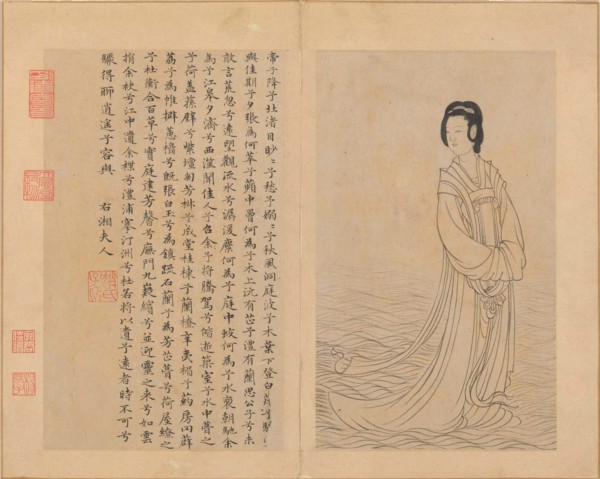 帝子降兮北渚目眇〻兮愁予嫋〻兮秋風洞庭波兮木葉下登白
與佳期兮夕張鳥何萃兮蘋中罾何為兮木上沅有芷兮澧有蘭思公子兮未
敢言荒忽兮遠望觀流水兮潺湲麋何為兮庭中蛟何為兮水裔朝馳余
馬兮江皋夕濟兮西澨聞佳人兮召余兮將騰駕兮偕逝築室兮水中葺之
兮荷蓋蓀壁兮紫壇匊芳椒兮成堂桂棟兮蘭橑辛夷楣兮葯房罔薜
荔兮為帷擗蕙櫋兮既張白玉兮為鎮疏石蘭兮為芳芷葺兮荷屋繚之
兮杜衡合百草兮實庭建芳馨兮廡門九嶷繽兮並迎靈之來兮如雲
捐余袂兮江中遺余褋兮澧浦搴汀洲兮杜若將以遺兮遠者時不可兮
驟得聊逍遙兮容與
右湘夫人